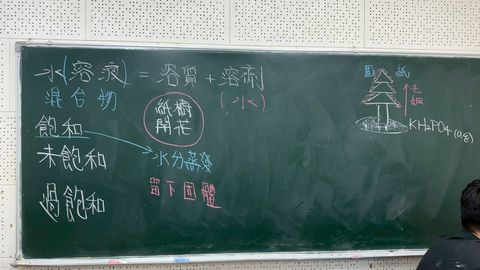 水(溶液) = 溶質 + 溶劑
混合物
(水)
紙樹
開花
飽和
未飽和
水分蒸發
過飽和
留下固體
圖 紙
毛
細
KH₂PO₄(aq)